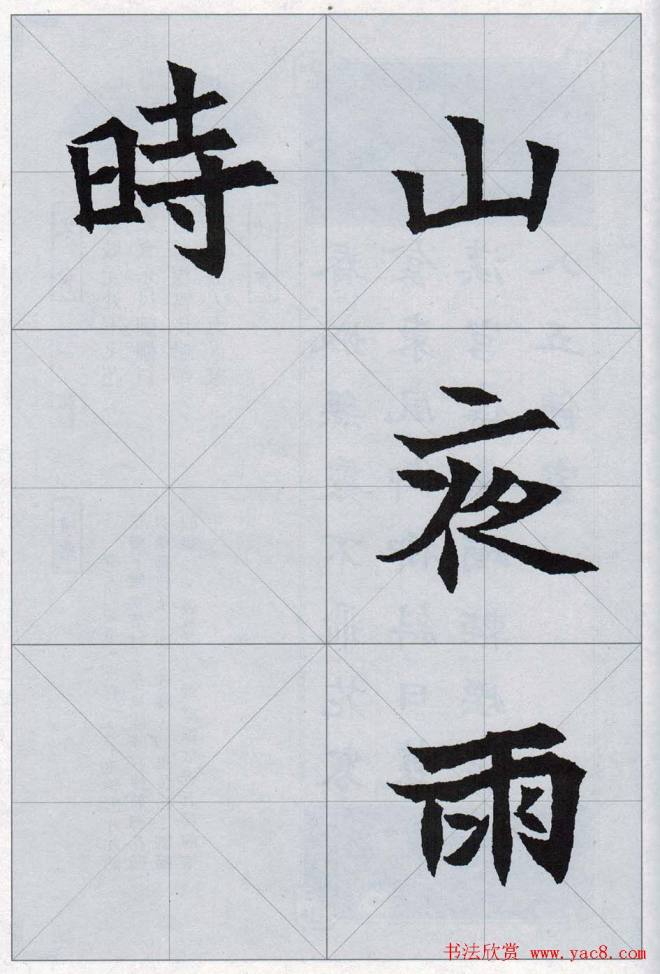 山夜雨
時
书法欣赏 www.yac8.com